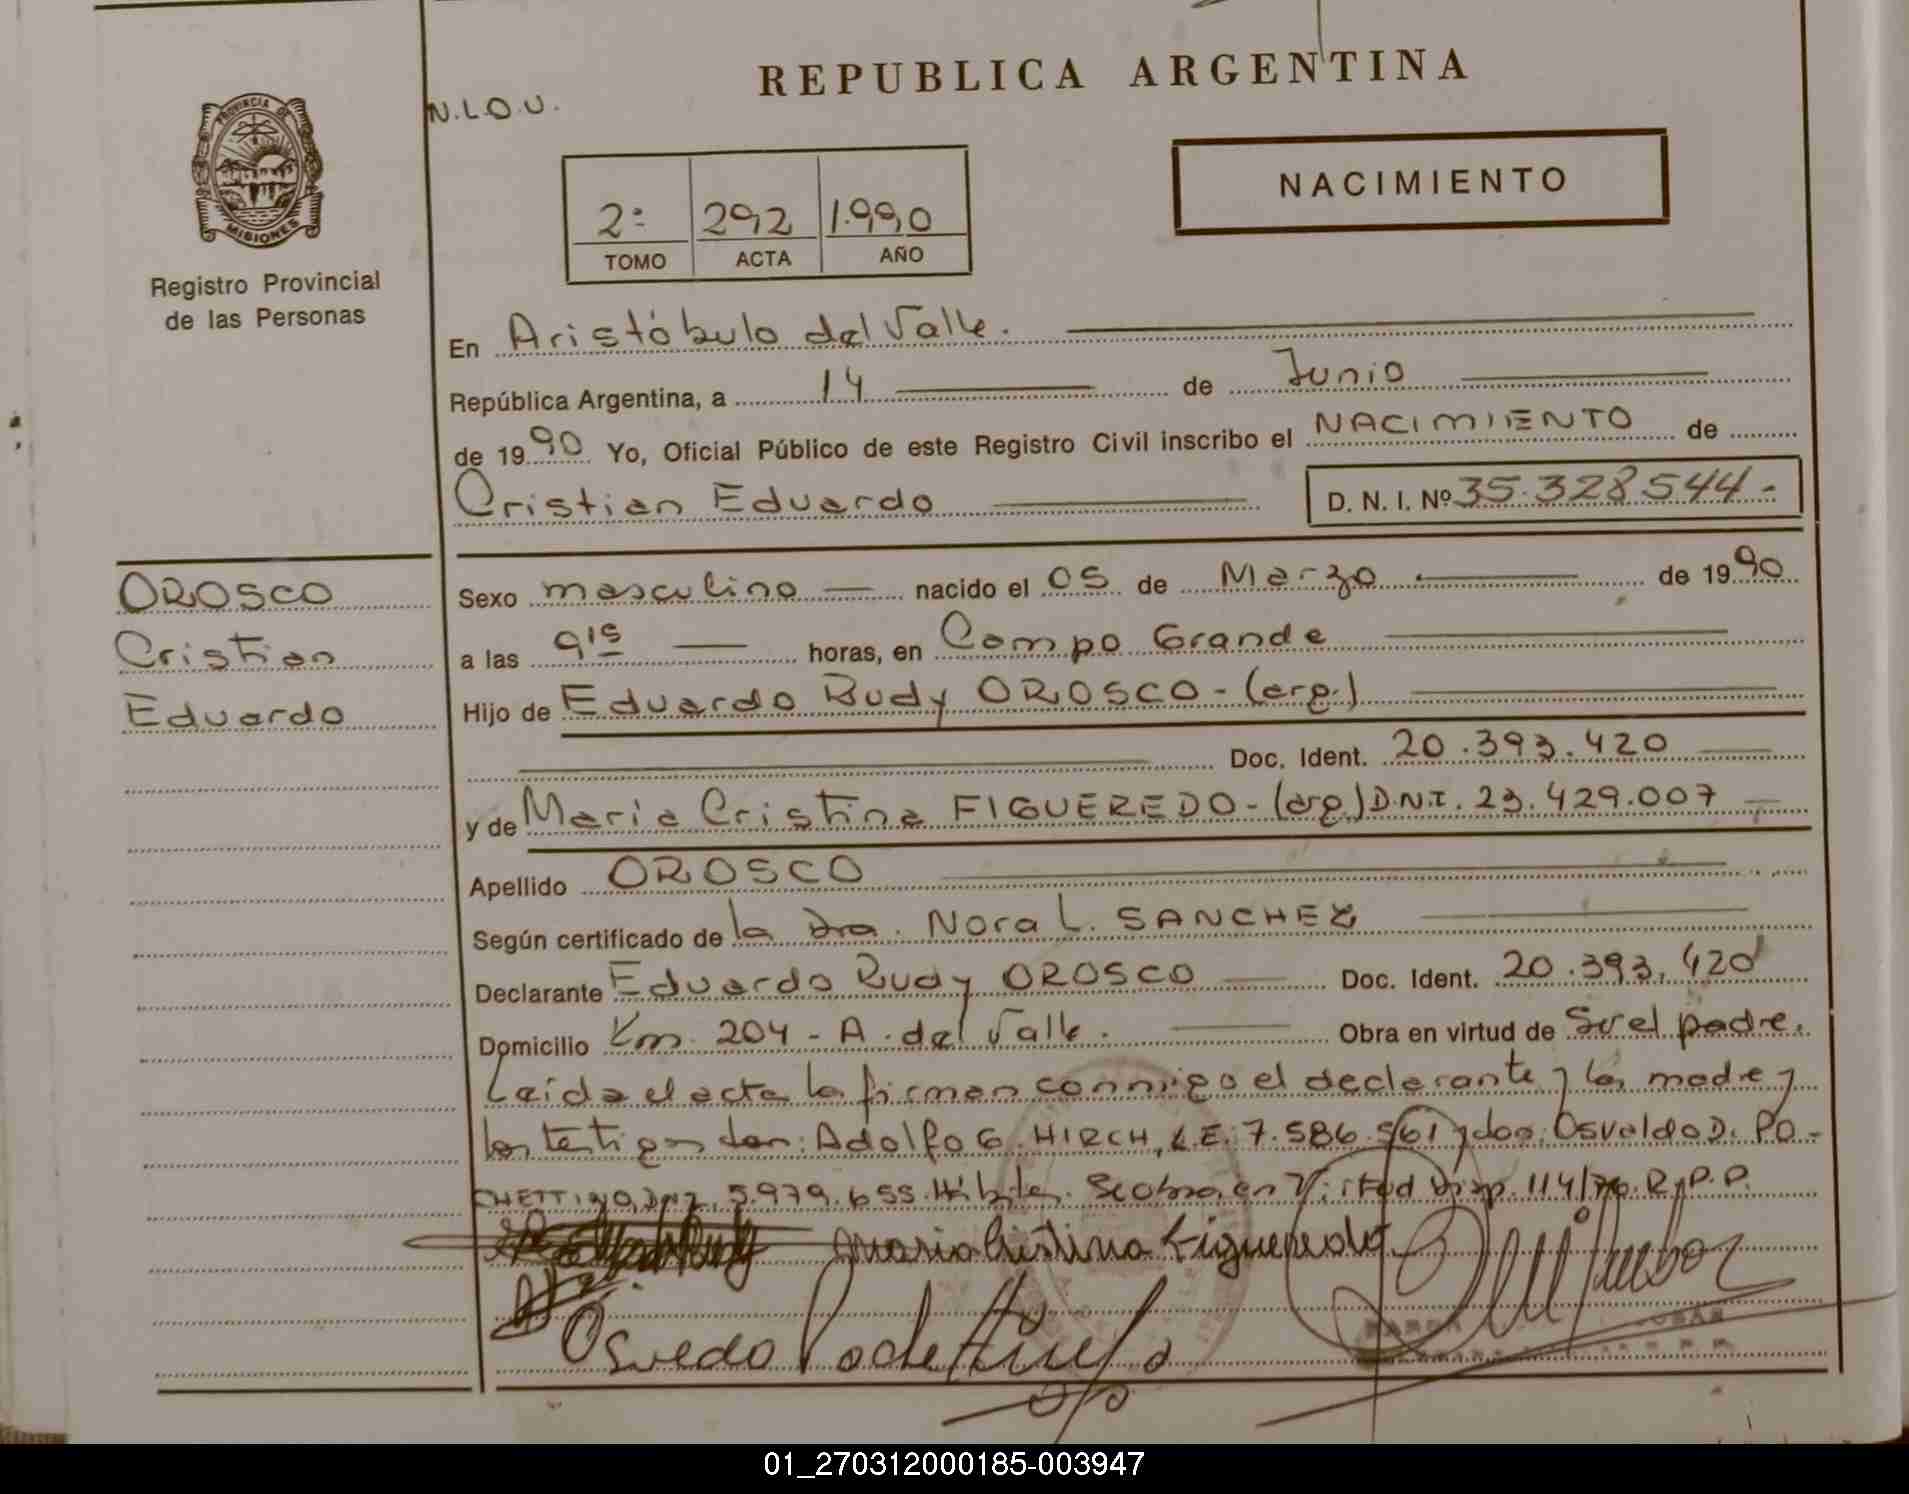 REPUBLICA ARGENTINA
N.L.O.U.
PROVINCIA DE
MISIONES
Registro Provincial
de las Personas
NACIMIENTO
2º 292 1.990
TOMO ACTA AÑO
En Aristóbulo del Valle.
República Argentina, a 14 de Junio
de 1990 Yo, Oficial Público de este Registro Civil inscribo el NACIMIENTO de
Cristian Eduardo D. N. I. Nº 35.328.544.-
OROSCO
Cristian
Eduardo
Sexo masculino nacido el 05 de Marzo de 1990
a las 9 15 horas, en Campo Grande
Hijo de Eduardo Rudy OROSCO - (arg.)
Doc. Ident. 20.393.420
y de Maria Cristina FIGUEREDO - (arg.) D.N.I. 23.429.007
Apellido OROSCO
Según certificado de la Dra. Nora L. SANCHEZ
Declarante Eduardo Rudy OROSCO Doc. Ident. 20.393.420
Domicilio Km. 204 - A. del Valle. Obra en virtud de Ser el padre.
Leída el acta la firman conmigo el declarante y la madre y
los testigos don: Adolfo G. HIRCH, L.E. 7.586.561 y don: Osvaldo D. PO-
CHETTINO, DNI. 5.979.655. Hábiles. Se obra en Virtud Disp. 114/76. R.P.P.
Maria Cristina Figueredo
01_270312000185-003947